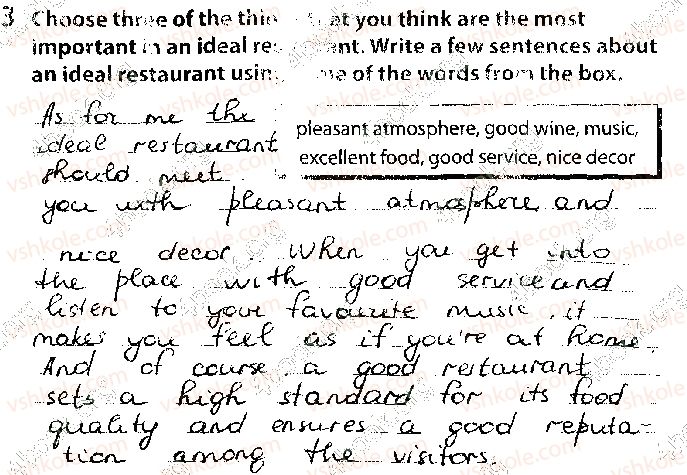 3 Choose three of the thin at you think are the most
important in an ideal re ant. Write a few sentences about
an ideal restaurant usin me of the words from the box.
pleasant atmosphere, good wine, music,
excellent food, good service, nice decor
As for me the
ideal restaurant
should meet
you with pleasant atmosphere and
nice decor. When you get into
the place with good service and
listen to your favourite music, it
makes you feel as if you're at home.
And of course a good restaurant
sets a high standard for its food
quality and ensures a good reputa-
tion among the visitors.